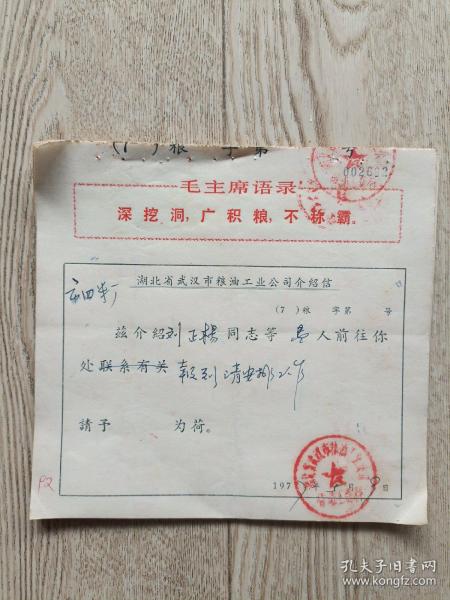 (7 ) 粮 字第 号
002692
毛主席语录
深挖洞，广积粮，不称霸。
湖北省武汉市粮油工业公司介绍信
(7 ) 粮 字第 号
兹介绍刘正楊同志等 人前往你
处联系有关 報到 请安排工作
請予 为荷。
197 年 月 日
孔夫子旧书网
www.kongfz.com